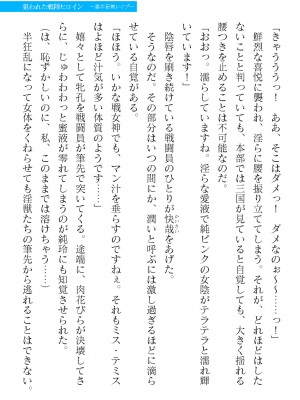 狙われた戦闘ヒロイン
「きゃうううっ！　ああ、そこはダメっ！　ダメなのぉ〜〜……っ！」
　鮮烈な喜悦に襲われ、淫らに腰を振り立ててしまう。それが、どれほどはした
ないことと判っていても、本部では三国が見ていると自覚しても、大きく揺れる
腰つきを止めることは不可能なのだ。
「おおっ。濡らしていますね。淫らな愛液で純ピンクの女陰がテラテラと濡れ輝
いています！」
　陰唇を刷き続けている戦闘員のひとりが快哉をあげた。
　そうなのだ。その部分はいつの間にか、潤いと呼ぶには激し過ぎるほどに滴ら
せている自覚がある。
「ほほう。いかな戦女神でも、マン汁を垂らすのですねぇ。それもミス・テミス
はよほど汁気が多い体質のようです……」
　嬉々として牝孔を戦闘員が筆先で突いてくる。途端に、肉花びらが決壊してき
に、じゅわわわっと蜜液が零れてしまうのが純玲にも知覚させられた。
「は、恥ずかしいのに、私、このままでは溶けちゃう……」
　半狂乱になって女体をくねらせても淫獣たちの筆先から逃れることはできない。